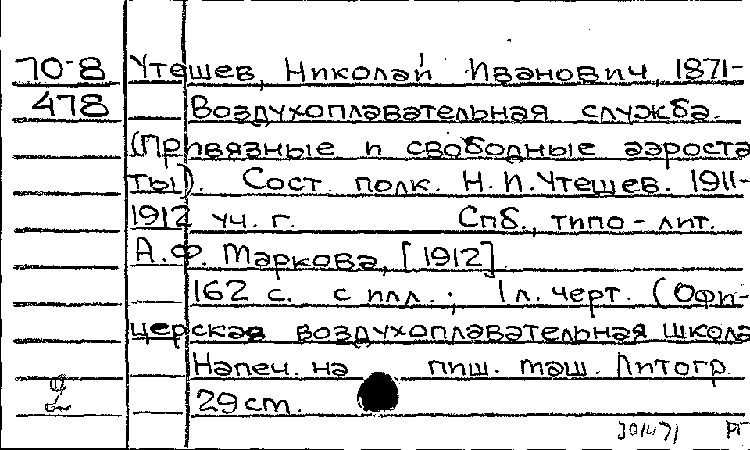 70-8 Утешев, Николай Иванович, 1871-
478 Воздухоплавательная служба.
(Привязные и свободные аэроста
ты). Сост. полк. Н.И.Утешев. 1911-
1912 уч. г. Спб., типо-лит.
А.Ф. Маркова, [1912]
162 с. с илл.; 1л. черт. (Офи-
церская воздухоплавательная школа
Напеч. на пиш. маш. Литогр.
29 см.